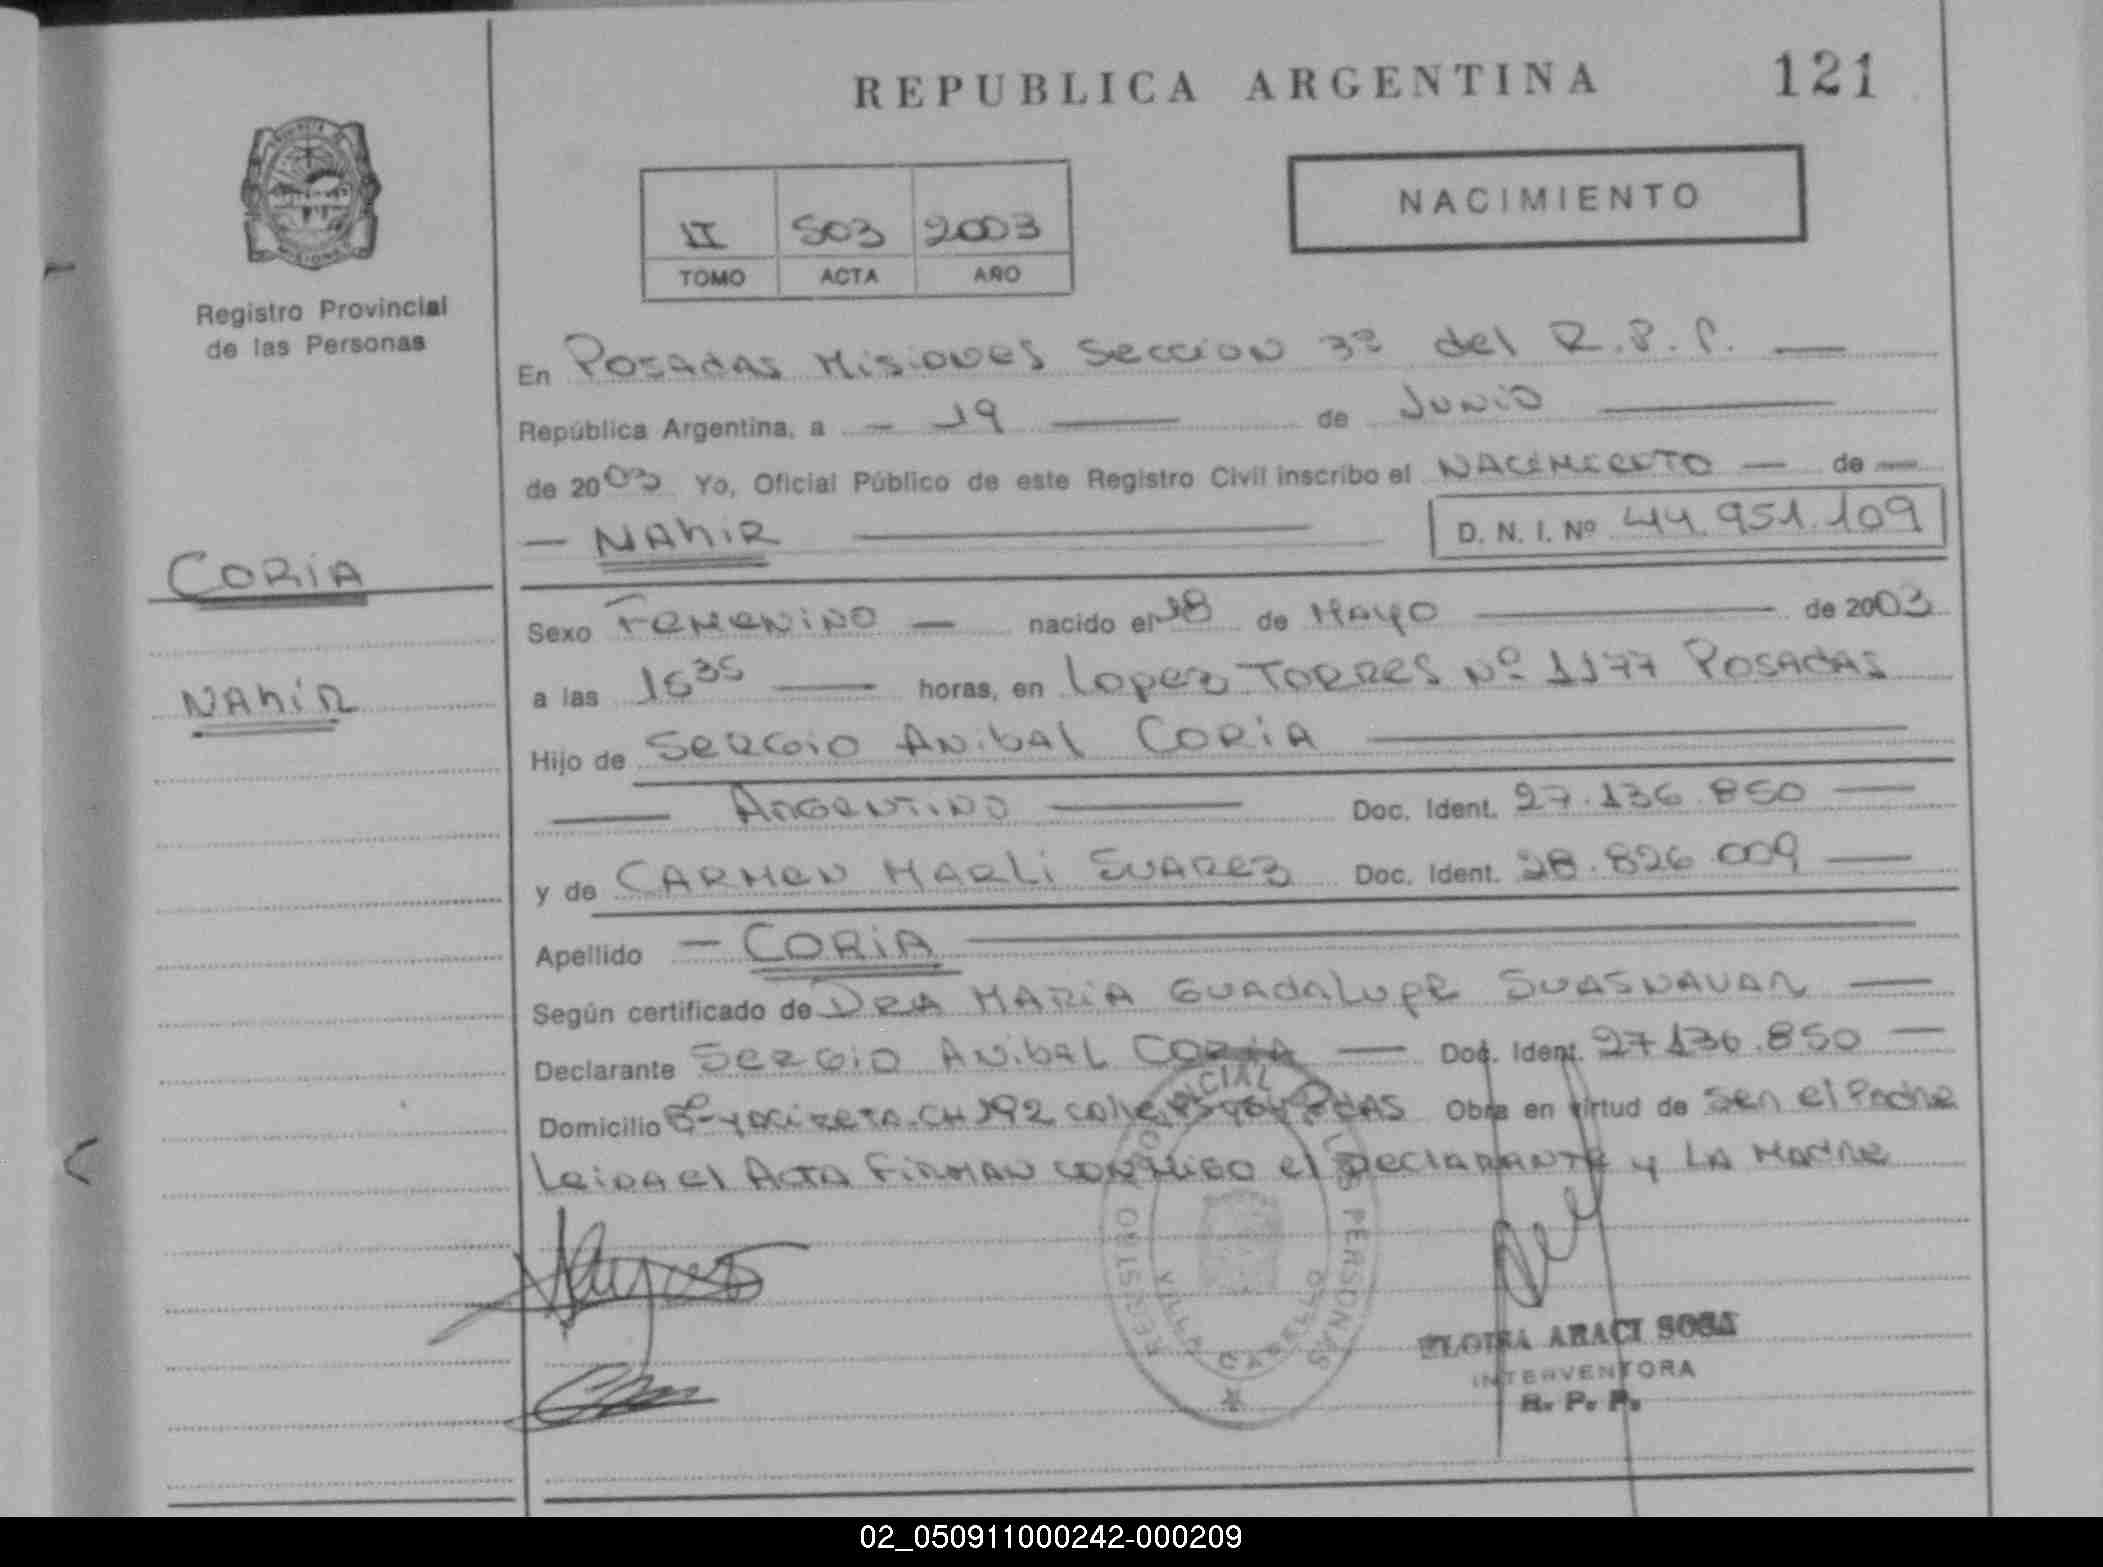 REPUBLICA ARGENTINA 121
NACIMIENTO
II 503 2003
TOMO ACTA AÑO
Registro Provincial
de las Personas
En Posadas Misiones Seccion 3ª del R.P.P.
República Argentina, a - 19 de Junio
de 2003 Yo, Oficial Público de este Registro Civil inscribo el NACIMIENTO — de —
— NAHIR D. N. I. Nº 44.951.109
CORIA
Sexo Femenino — nacido el 18 de Mayo de 2003
NAHIR
a las 1535 horas, en Lopez Torres Nº 1177 Posadas
Hijo de Sergio Anibal Coria
Argentino Doc. Ident. 27.136.850
y de Carmen Marli Suarez Doc. Ident. 28.826.009
Apellido — CORIA
Según certificado de Dra Maria Guadalupe Suasnavar
Declarante Sergio Anibal Coria — Doc. Ident. 27.136.850
Domicilio Bº Yacireta CH 192 Calle Pdas Obra en virtud de Ser el Padre
Leida el Acta Firman conmigo el Declarante y la Madre
REGISTRO PERSONAS
VILLA CABELLO
ELOISA ARACI SOSA
INTERVENTORA
R. P. P.
02_050911000242-000209